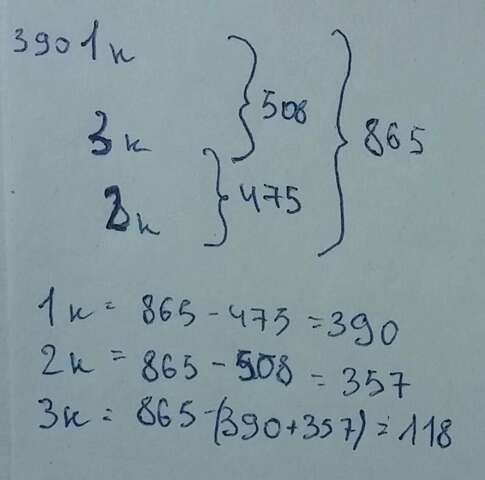 390 1к
3к } 508 } 865
2к } 475
1к = 865 - 475 = 390
2к = 865 - 508 = 357
3к = 865 - (390 + 357) = 118